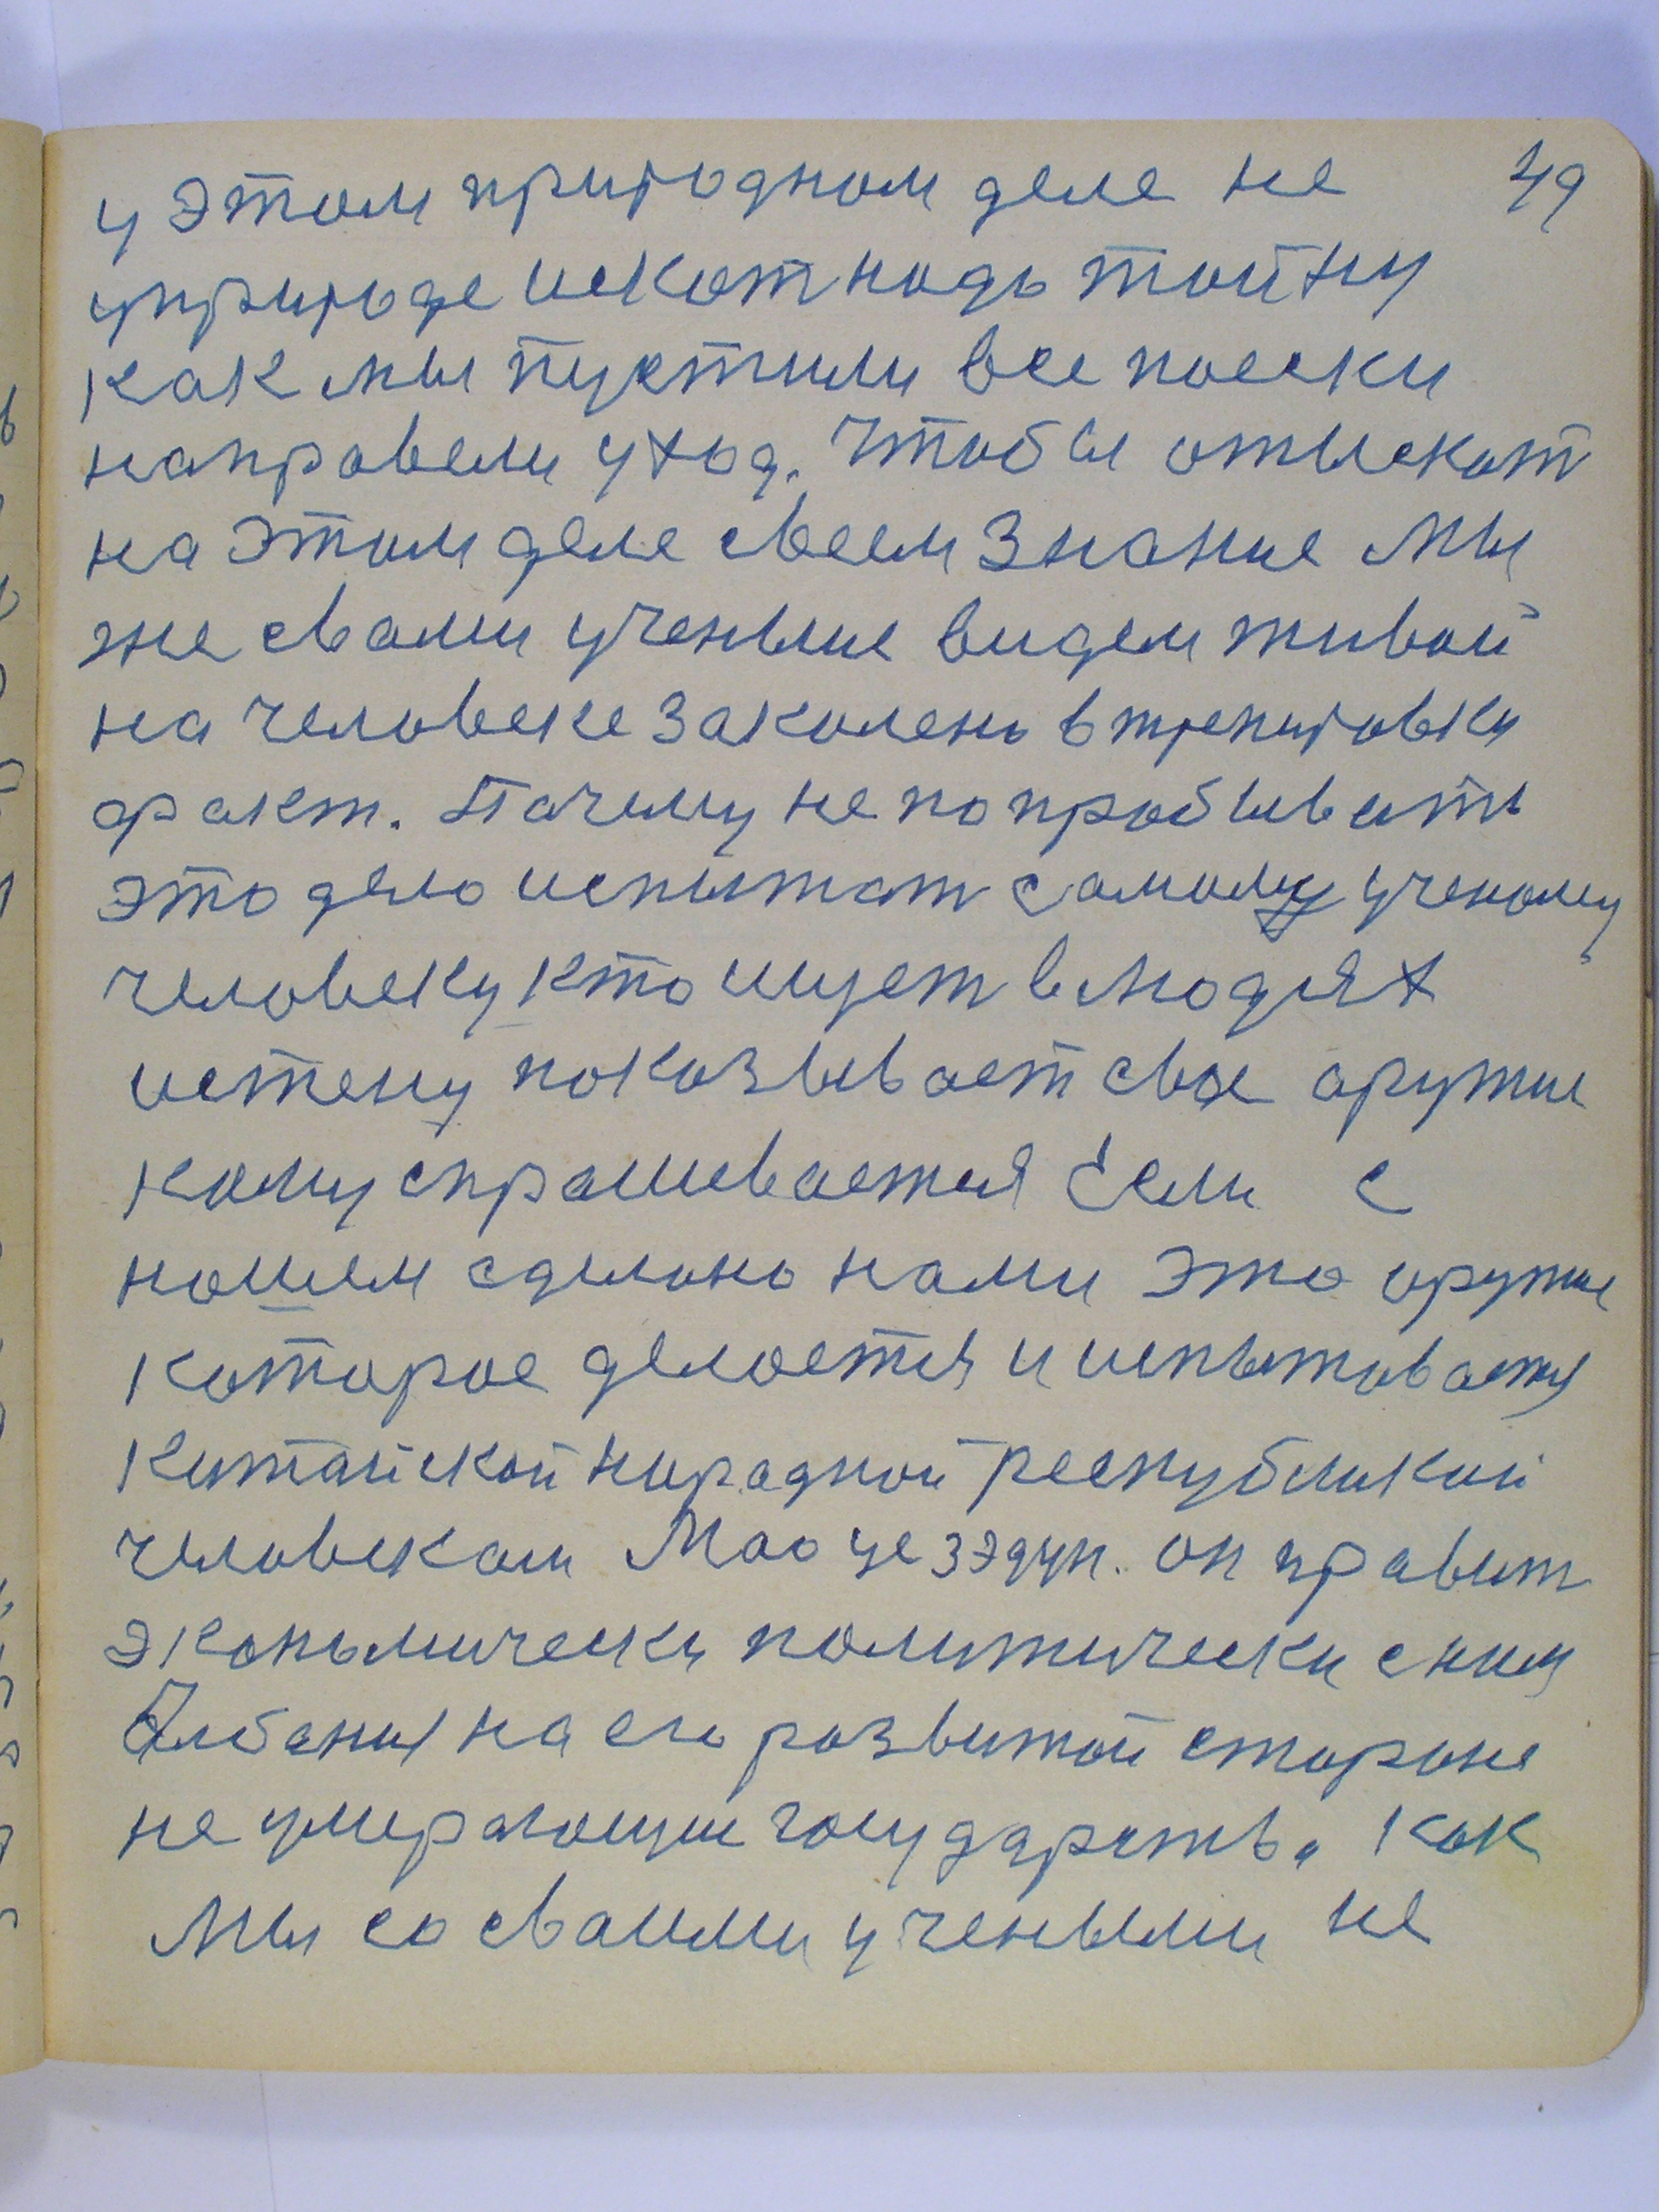 у этом природном деле не 49
уприроде искат надо тайну
как мы пустили все поески
направели уход. Чтобы отыскат
на этом деле своем знание мы
же свами ученыие видем живой
на человеке заколено втренировки
факт. Пачему не попробывать
это дело испытат самому ученому
человеку кто ищет влюдях
истену показывает свое аружие
кому спрашевается Если с
нашем сделано нами это оружие
которое делается и испытовается
Китайской народной республикой
человеком Мао це зэдун. он правит
экономически политически сним
Албания на его развитой стороне
не умерающие государств. как
мы со сваими учеными не